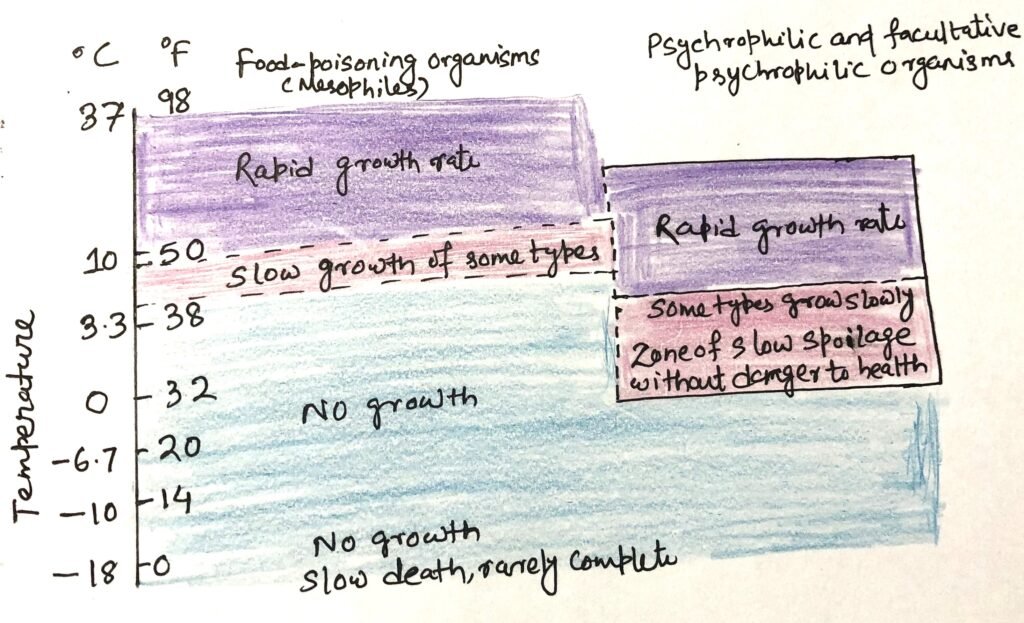 °C °F Food-poisoning organisms
(Mesophiles)
Psychrophilic and facultative
psychrophilic organisms
37 98
Rapid growth rate
Rapid growth rate
10 50
Slow growth of some types
3.3 38
Some types grow slowly
Zone of slow spoilage
without danger to health
Temperature
0 32
No growth
-6.7 20
-10 14
No growth
-18 0
Slow death, rarely complete